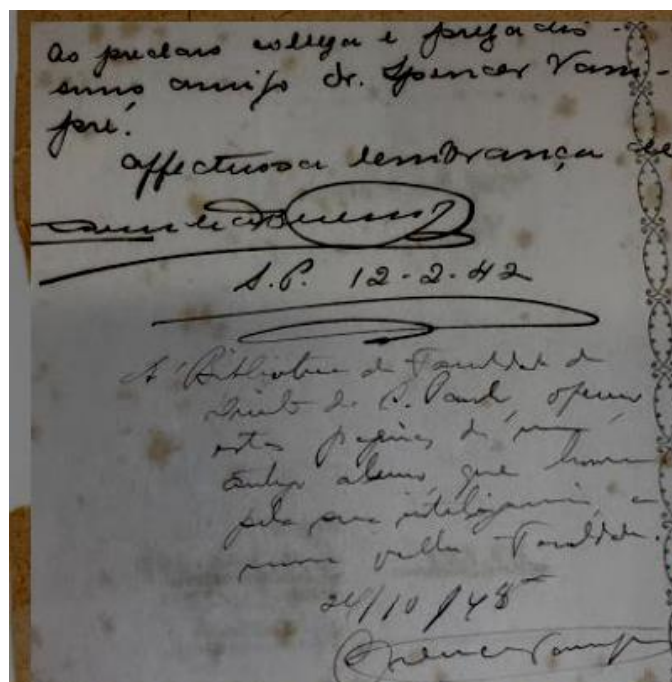 Ao preclaro collega e presadis-
simo amigo dr. Spencer Vam-
pré.
affectuosa lembrança de
S.P. 12-2-42
A' Bibliotheca da Faculdade de
Direito de S. Paulo, offereço
estas paginas de meu
antigo alumno, que honra
pela sua intelligencia, a
nossa velha Faculdade.
24/10/45
Spencer Vampré